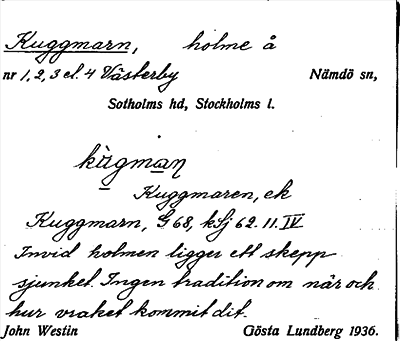 Kuggmarn, holme å
nr 1, 2, 3 el. 4 Västerby Nämdö sn,
Sotholms hd, Stockholms l.
kùgmaṇ
Kuggmaren, ek
Kuggmarn, G 68, kSj 62.11.IV
Invid holmen ligger ett skepp
sjunket. Ingen tradition om när och
hur vraket kommit dit.
John Westin Gösta Lundberg 1936.